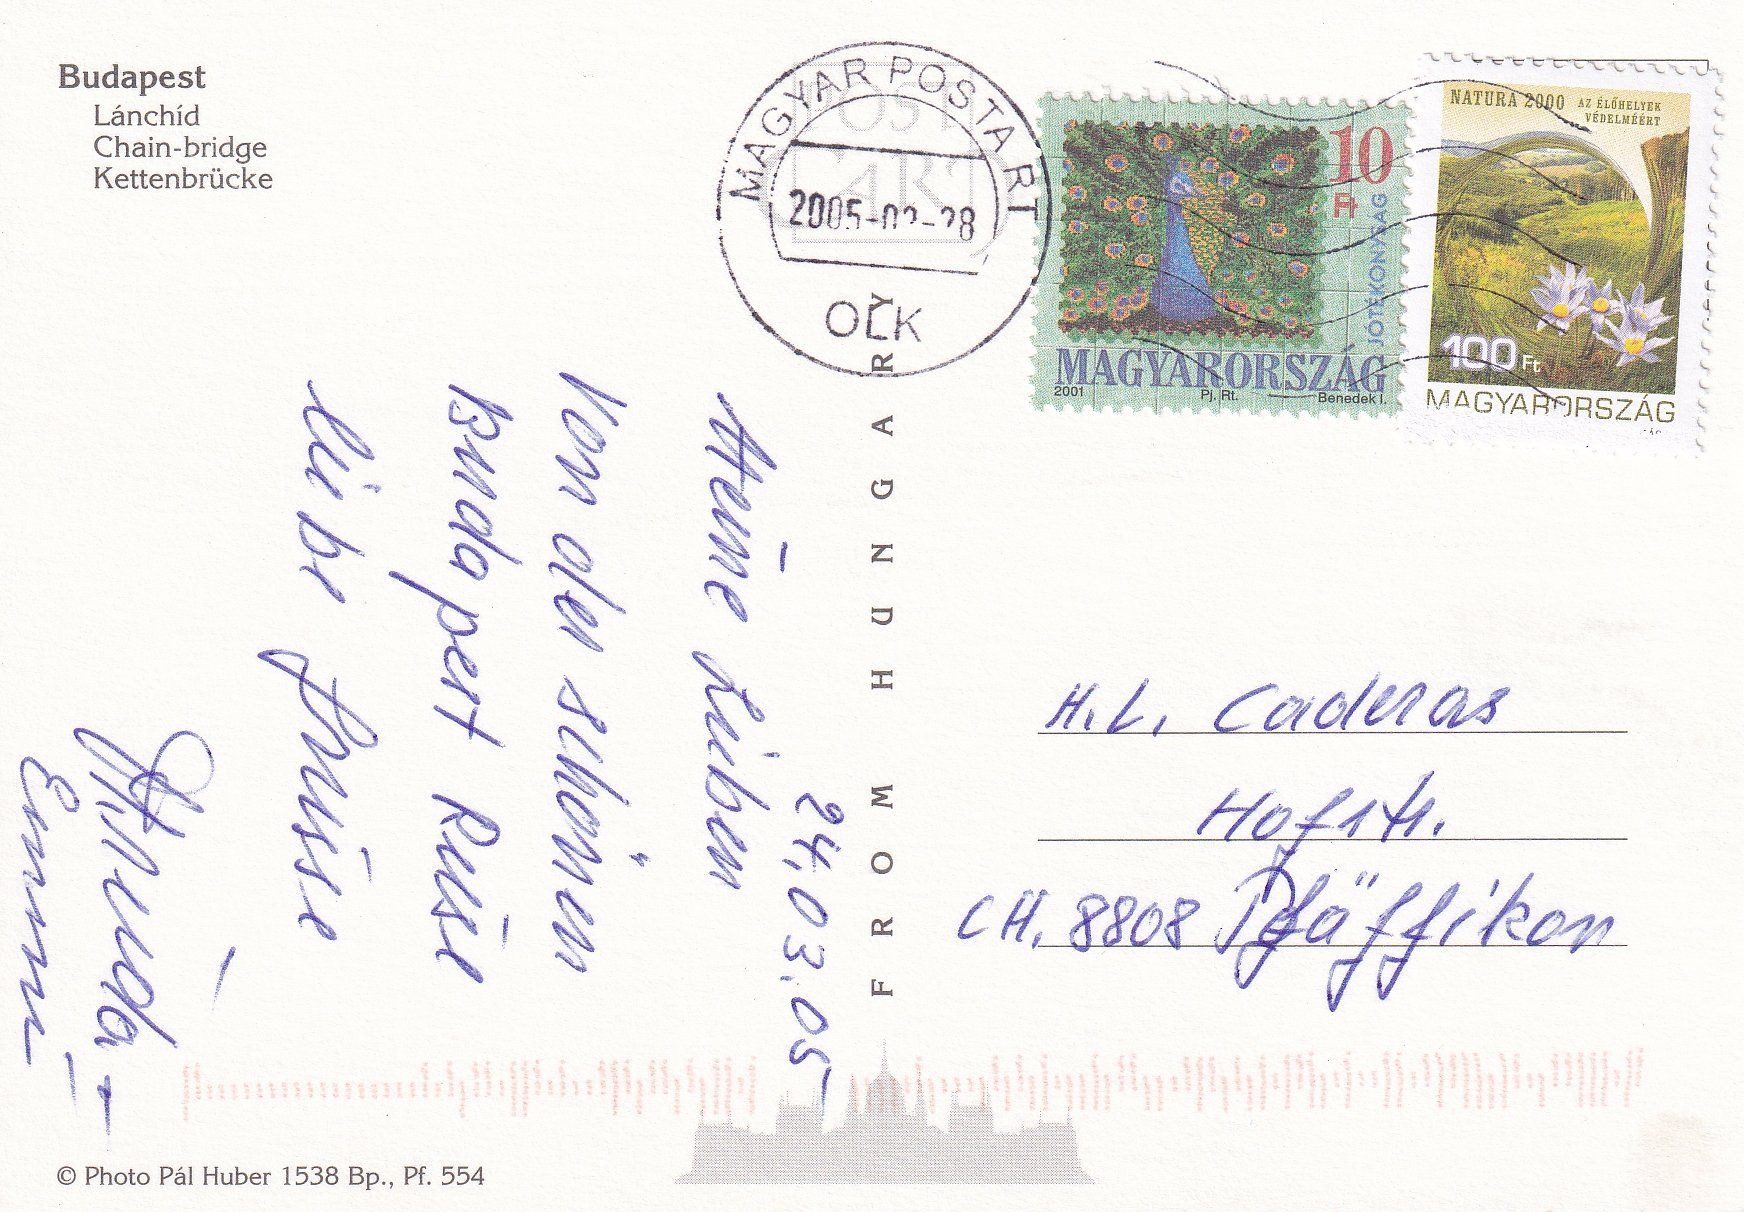 Budapest
Lánchíd
Chain-bridge
Kettenbrücke
MAGYAR POSTA RT
2005-03-28
OLK
10
Ft
JÓTÉKONYSÁG
MAGYARORSZÁG
2001 Pj. Rt. Benedek I.
NATURA 2000 AZ ÉLŐHELYEK
VÉDELMÉÉRT
100 Ft
MAGYARORSZÁG
FROM HUNGARY
24.03.05
Meine Lieben
Von der schönen
Budapest Reise
liebe Grüsse
H.L. Caderas
Hofstr.
CH. 8808 Pfäffikon
© Photo Pál Huber 1538 Bp., Pf. 554